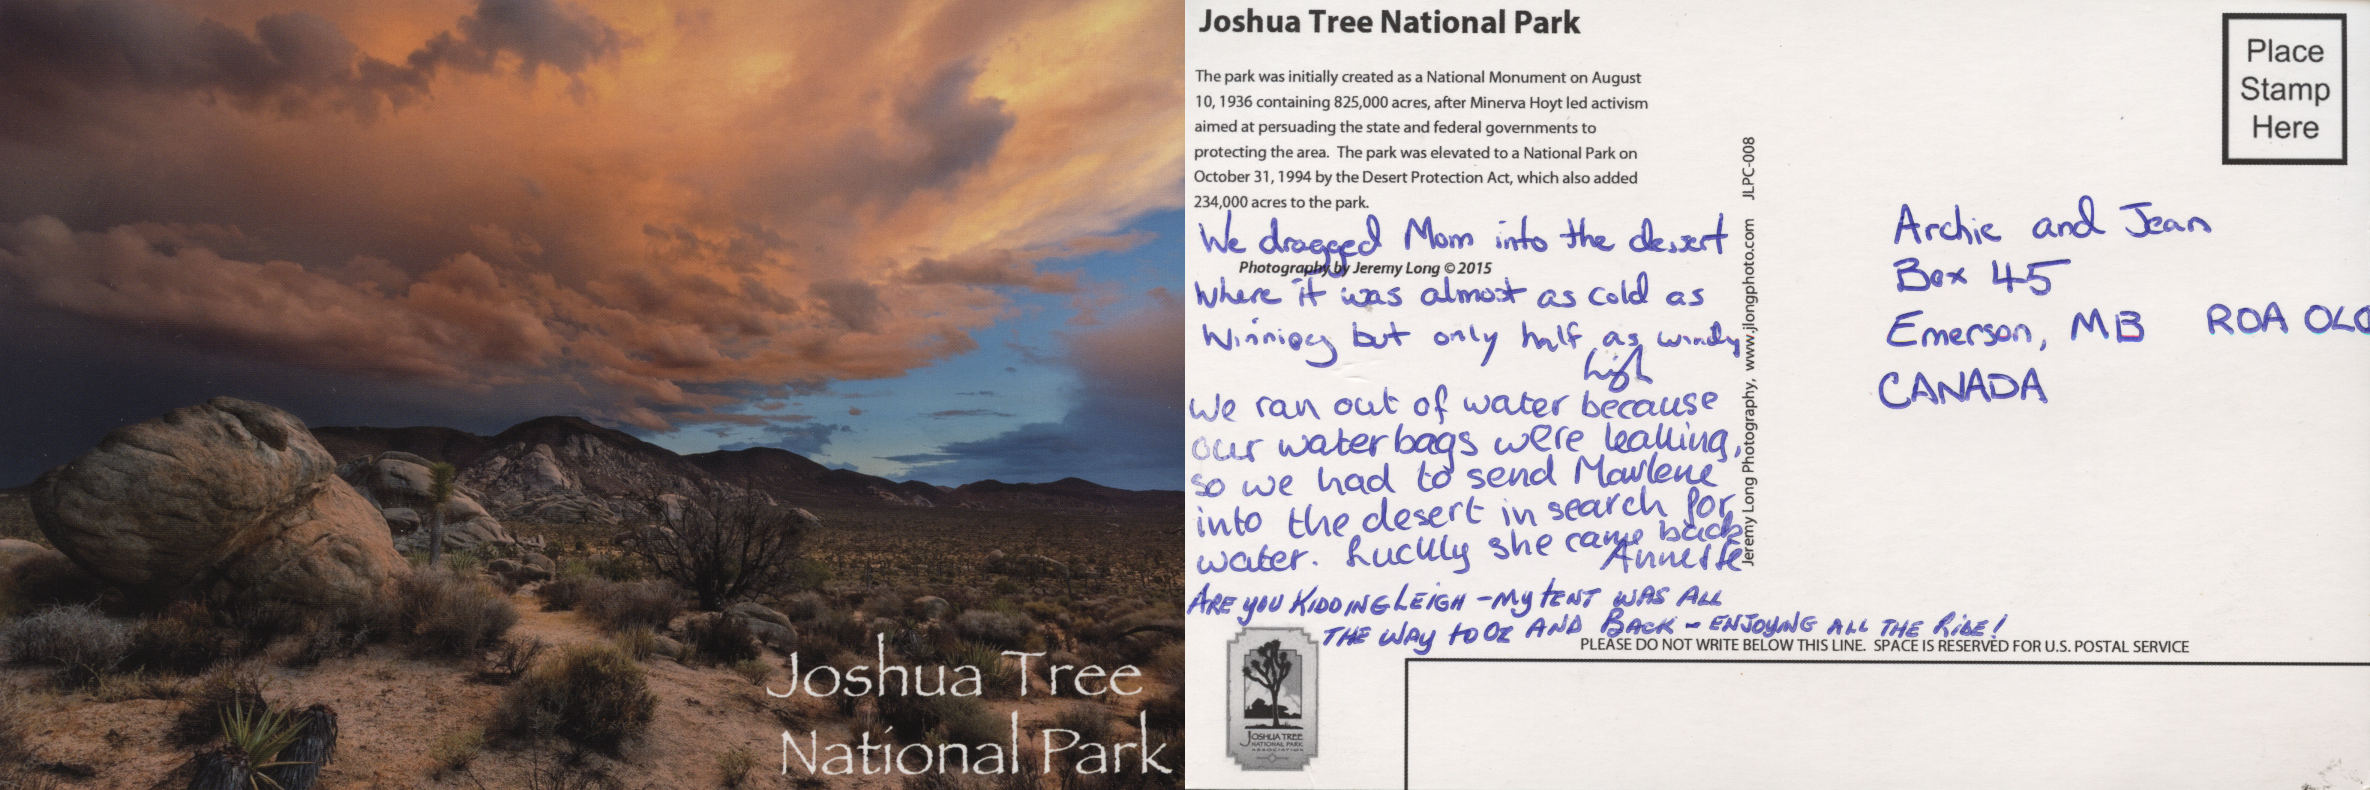 Joshua Tree
National Park
Joshua Tree National Park
The park was initially created as a National Monument on August
10, 1936 containing 825,000 acres, after Minerva Hoyt led activism
aimed at persuading the state and federal governments to
protecting the area. The park was elevated to a National Park on
October 31, 1994 by the Desert Protection Act, which also added
234,000 acres to the park.
We dragged Mom into the desert
Photography by Jeremy Long © 2015
Where it was almost as cold as
Winnipeg but only half as windy
Leigh
We ran out of water because
our waterbags were leaking,
so we had to send Marlene
into the desert in search for
water. Luckily she came back
Annette
ARE YOU KIDDING LEIGH - MY TENT WAS ALL
THE WAY TO OZ AND BACK - ENJOYING ALL THE RIDE!
Jeremy Long Photography, www.jlongphoto.com JLPC-008
Place
Stamp
Here
Archie and Jean
Box 45
Emerson, MB R0A 0L0
CANADA
PLEASE DO NOT WRITE BELOW THIS LINE. SPACE IS RESERVED FOR U.S. POSTAL SERVICE
JOSHUA TREE
NATIONAL PARK
ASSOCIATION